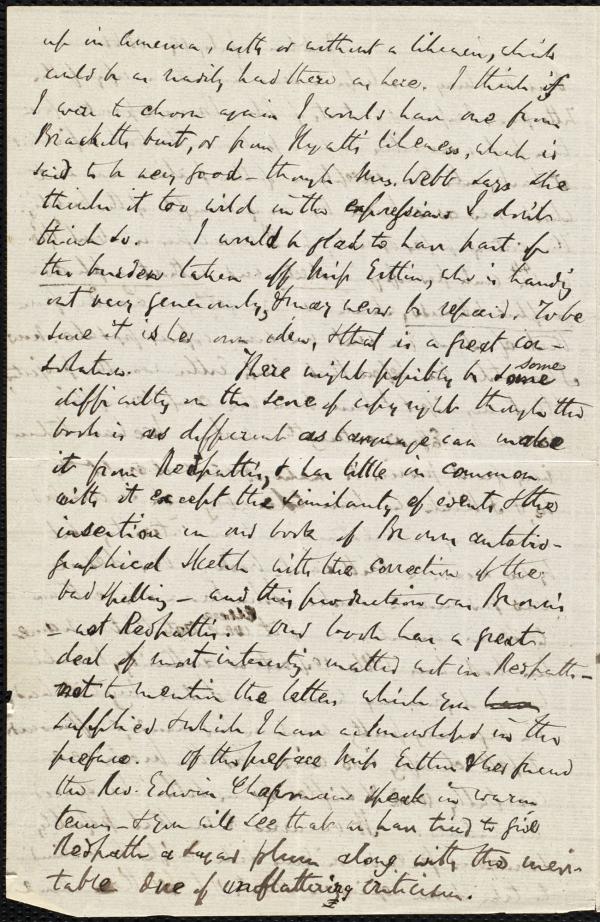 up in America, with or without a likeness, which
could be as readily had there as here. I think if
I were to choose again I would have one from
Brackett's bust, or from Hyatt's likeness, which is
said to be very good – though Mrs. Webb says she
thinks it too wild in the expression I don't
think so. I would be glad to have part of
the burden taken off Miss Estlin, who is handing
out very generously, & may never be repaid. To be
sure it is her own idea, & that is a great con-
solation. There might possibly be some some
difficulty on the score of copyright though the
book is as different as language can make
it from Redpath's, & has little in common
with it except the similarity of events & the
insertion in our book of Brown autobio-
graphical sketch with the correction of the
bad spelling – and this production was Brown's
– not Redpath's. Our book has a great
deal of most interesting matter not in Redpath –
not to mention the letters which you
supplied & which I have acknowledged in the
preface. Of the preface Miss Estlin & her friend
the Rev. Edwin Chapman speak in warm
terms – & you will see that we have tried to give
Redpath a sugar plum along with the inevi-
table one of unflattering criticism.